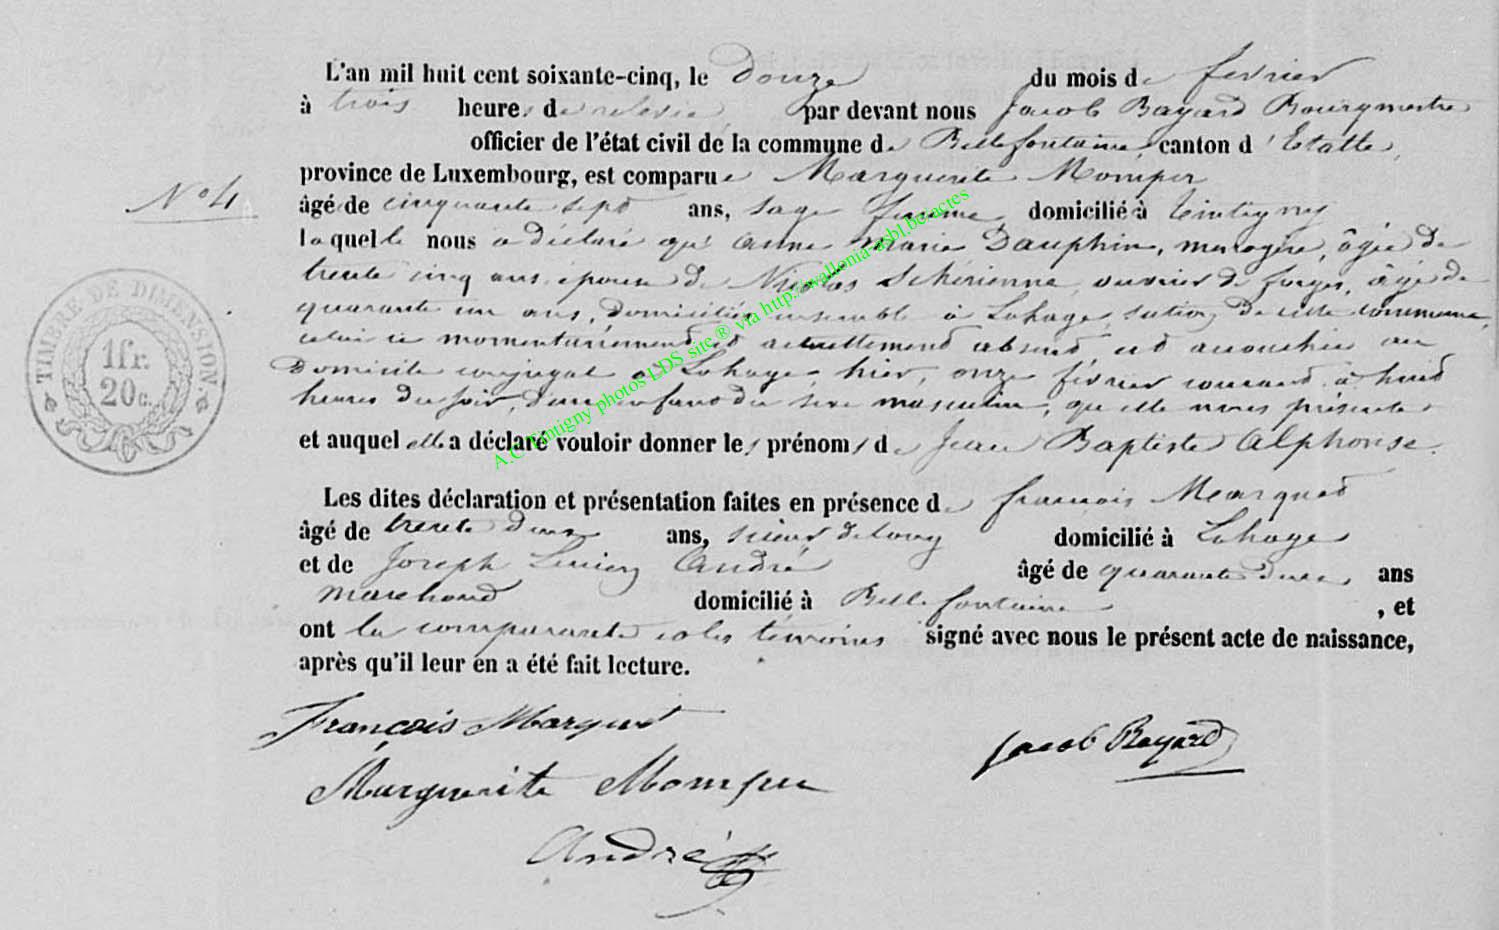 L'an mil huit cent soixante-cinq, le douze du mois de fevrier
à trois heures de relevée, par devant nous Jacob Bayard Bourgmestre
officier de l'état civil de la commune de Bellefontaine, canton d'Etalle,
province de Luxembourg, est comparue Marguerite Momper
N° 4
âgé de cinquante sept ans, sage femme domicilié à Tintigny
laquelle nous a déclaré qu'Anne Marie Dauphin, menagère, âgée de
trente cinq ans, epouse de Nicolas Schérienne, ouvrier de forges, âgé de
quarante un ans, domiciliés ensemble à Lahage, section de cette commune,
celui ci momentanément et actuellement absent, est accouchée au
domicile conjugal à Lahage, hier, onze février courant, à huit
heures du soir, d'un enfant du sexe masculin, qu'elle nous présente
et auquel elle a déclaré vouloir donner les prénoms de Jean Baptiste Alphonse.
TIMBRE DE DIMENSION
1fr.
20c.
A.C Tintigny photos LDS site ® via http://wallonia-asbl.be/actes
Les dites déclaration et présentation faites en présence de françois Marquet
âgé de trente deux ans, scieur de long domicilié à Lahage
et de Joseph Lucien André âgé de quarante deux ans
marchand domicilié à Bellefontaine, et
ont la comparante et les témoins signé avec nous le présent acte de naissance,
après qu'il leur en a été fait lecture.
François Marquet
Jacob Bayard
Marguerite Momper
André